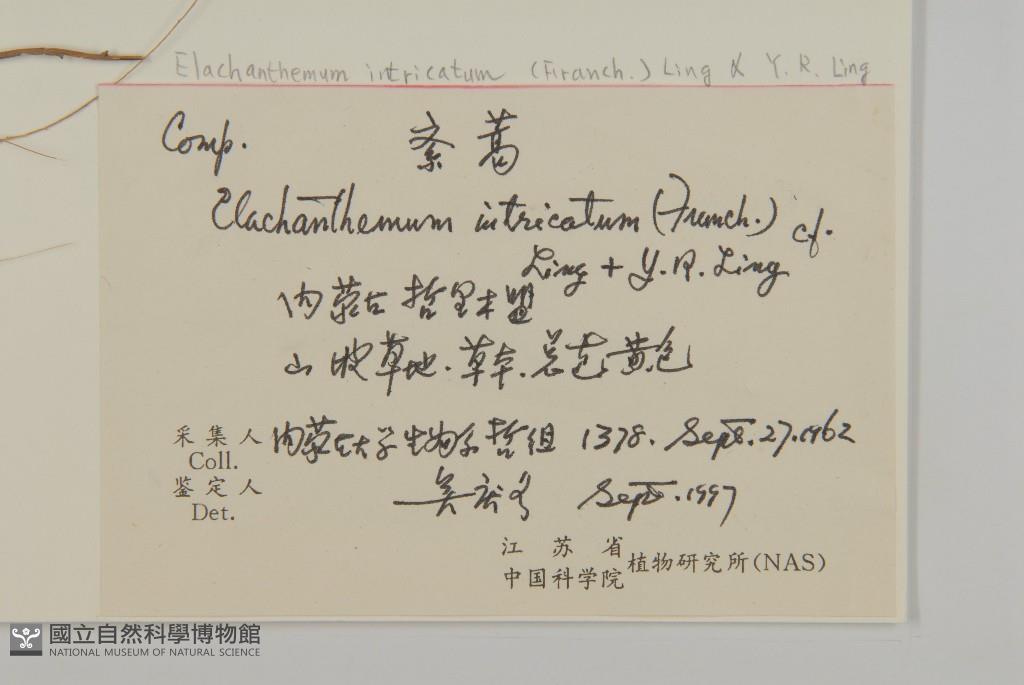 Elachanthemum intricatum (Franch.) Ling & Y. R. Ling
Comp. 紊蒿
Elachanthemum intricatum (Franch.) cf.
Ling + Y. R. Ling
内蒙古 哲里木盟
山坡草地. 草本. 总苞黄色
采集人 内蒙古大学生物系哲组 1378. Sept. 27. 1962
Coll.
鉴定人 Sept. 1997
Det.
江苏省
中国科学院 植物研究所(NAS)
國立自然科學博物館
NATIONAL MUSEUM OF NATURAL SCIENCE